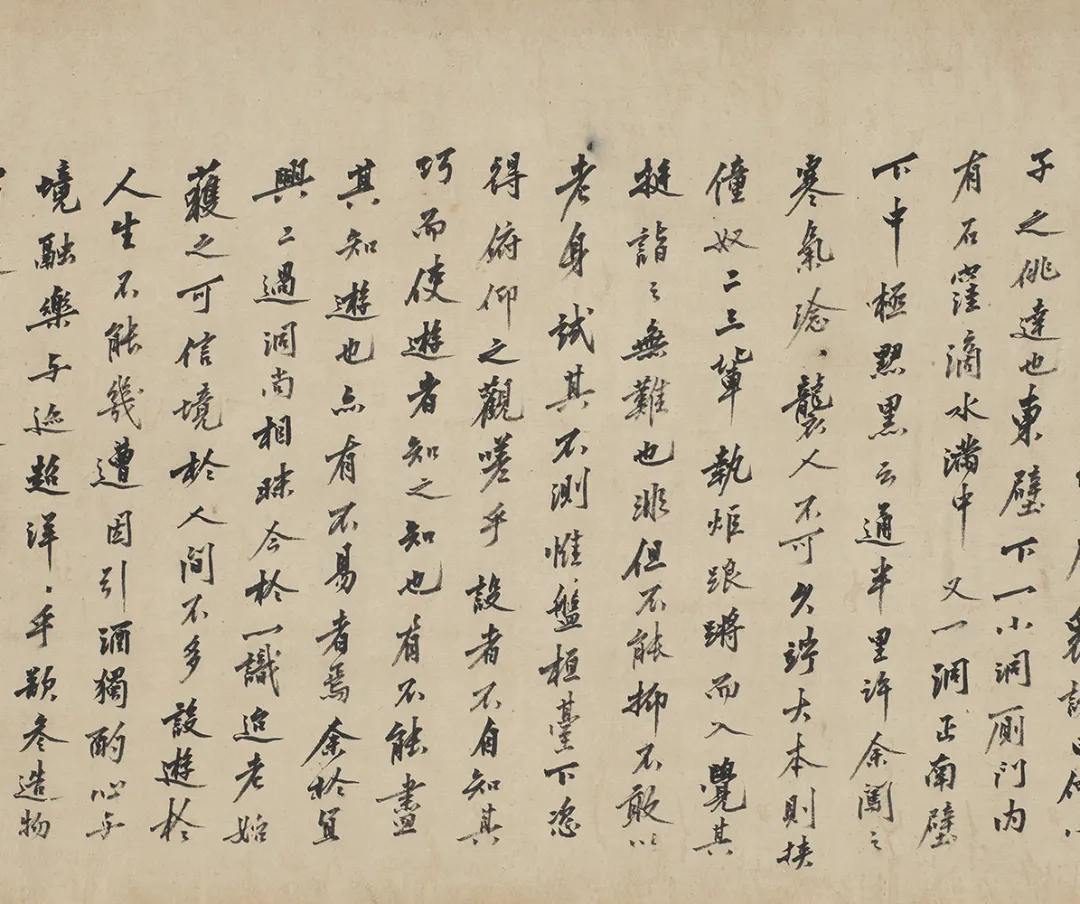 子之佻達也東壁下一小洞廁门内
有石窪滴水滿中又一洞正南壁
下中極黑黑云通半里许余闖之
寒氣襲人不可久竚大本則挾
僮奴二三輩執炬踉蹡而入覺其
挺詣〻無難也非但不能抑不敢以
老身試其不測惟盤桓臺下恣
得俯仰之觀嗟乎設者不自知其
巧而使遊者知之知也有不能盡
其知遊也亦有不易者焉余於宜
興二過洞尚相昧今於一識迨老始
獲之可信境於人间不多設遊於
人生不能幾遭因引酒獨酌心与
境融樂与迹超洋〻乎歆叅造物